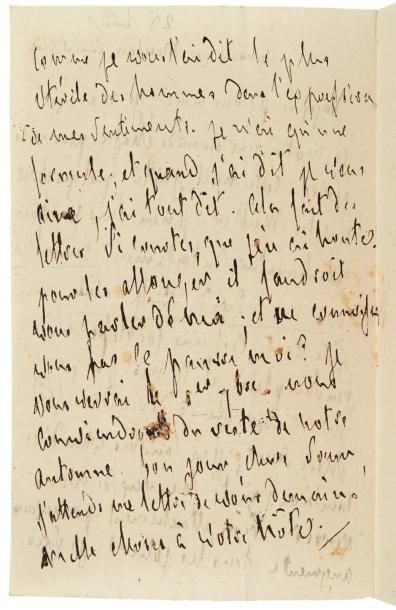 comme je vous l'ai dit le plus
stérile des hommes dans l'expression
de mes sentiments. je n'ai qu'une
formule; et quand j'ai dit je vous
aime, j'ai tout dit. cela fait des
lettres si courtes, que j'en ai honte.
pour les allonger il faudroit
vous parler de moi; et ne connoissez
vous pas ce pauvre moi? je
vous verrai le 1er 7bre. nous
conviendrons du reste de notre
automne. bon jour chere soeur
j'attends une lettre de vous demain.
mille choses à votre hôte.